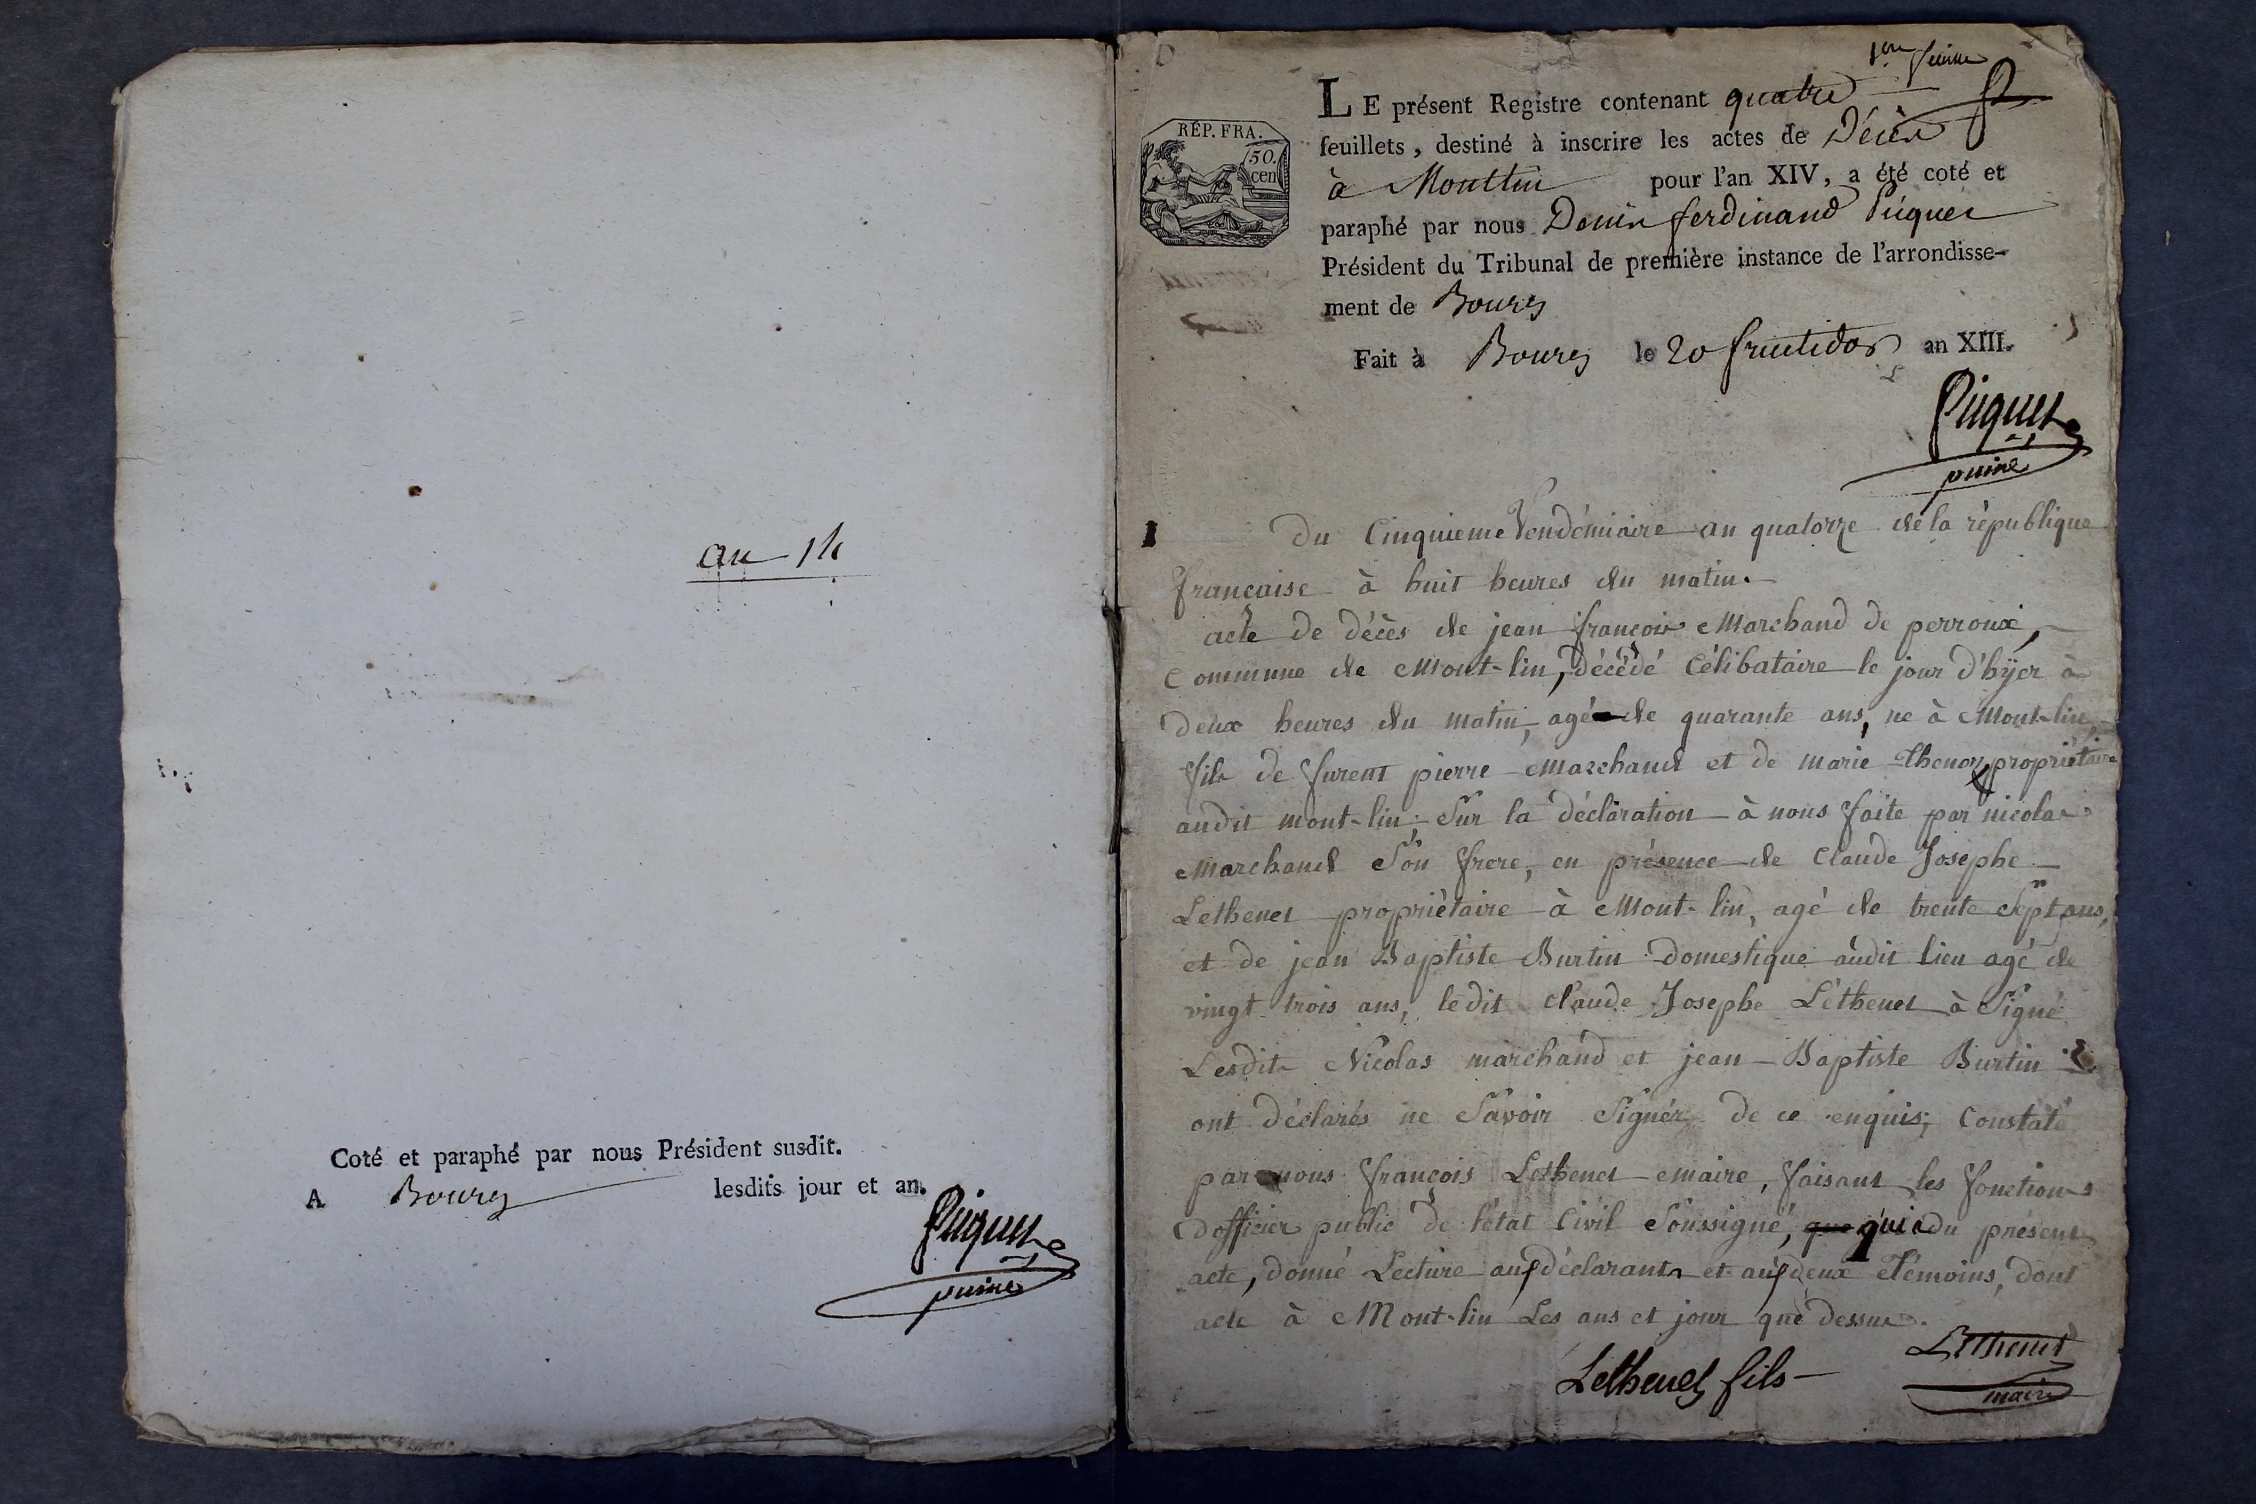 an 14
Coté et paraphé par nous Président susdit.
A Bourg lesdits jour et an.
Piquet
puiné
1ere feuille
RÉP. FRA.
50.
cen
LE présent Registre contenant quatre
feuillets, destiné à inscrire les actes de Décès
à Montlin pour l'an XIV, a été coté et
paraphé par nous Denis ferdinand Piquet
Président du Tribunal de première instance de l'arrondisse-
ment de Bourg
Fait à Bourg le 20 fructidor an XIII.
Piquet
puiné
1
Du Cinquieme Vendémiaire an quatorze de la république
francaise à huit heures du matin.
acte de décès de jean françois Marchand de perroux,
Commune de Mont-lin, décédé Célibataire le jour d'hÿer à
deux heures du matin, agé de quarante ans, ne à Mont-lin,
fils de furent pierre Marchand et de marie thenoz, propriétaire
audit mont-lin. Sur la déclaration à nous faite par nicolas
Marchand Son frere, en présence de Claude Josephe
Lethenet propriétaire à Mont-lin, agé de trente Sept ans,
et de jean Baptiste Burtin domestique audit lieu agé de
vingt trois ans, ledit claude Josephe Léthenet à Signé
Lesdits Nicolas marchand et jean-Baptiste Burtin
ont déclarés ne Savoir Signér de ce enquis, Constaté
par nous françois Lethenet maire, faisant les fonctions
dofficier public de l'état Civil Soussigné, que qui du présent
acte, donné Lecture aux déclarants et aux deux Témoins, dont
acte à Mont-lin Les ans et jour que dessus.
Lethenet fils
Lethenet
maire